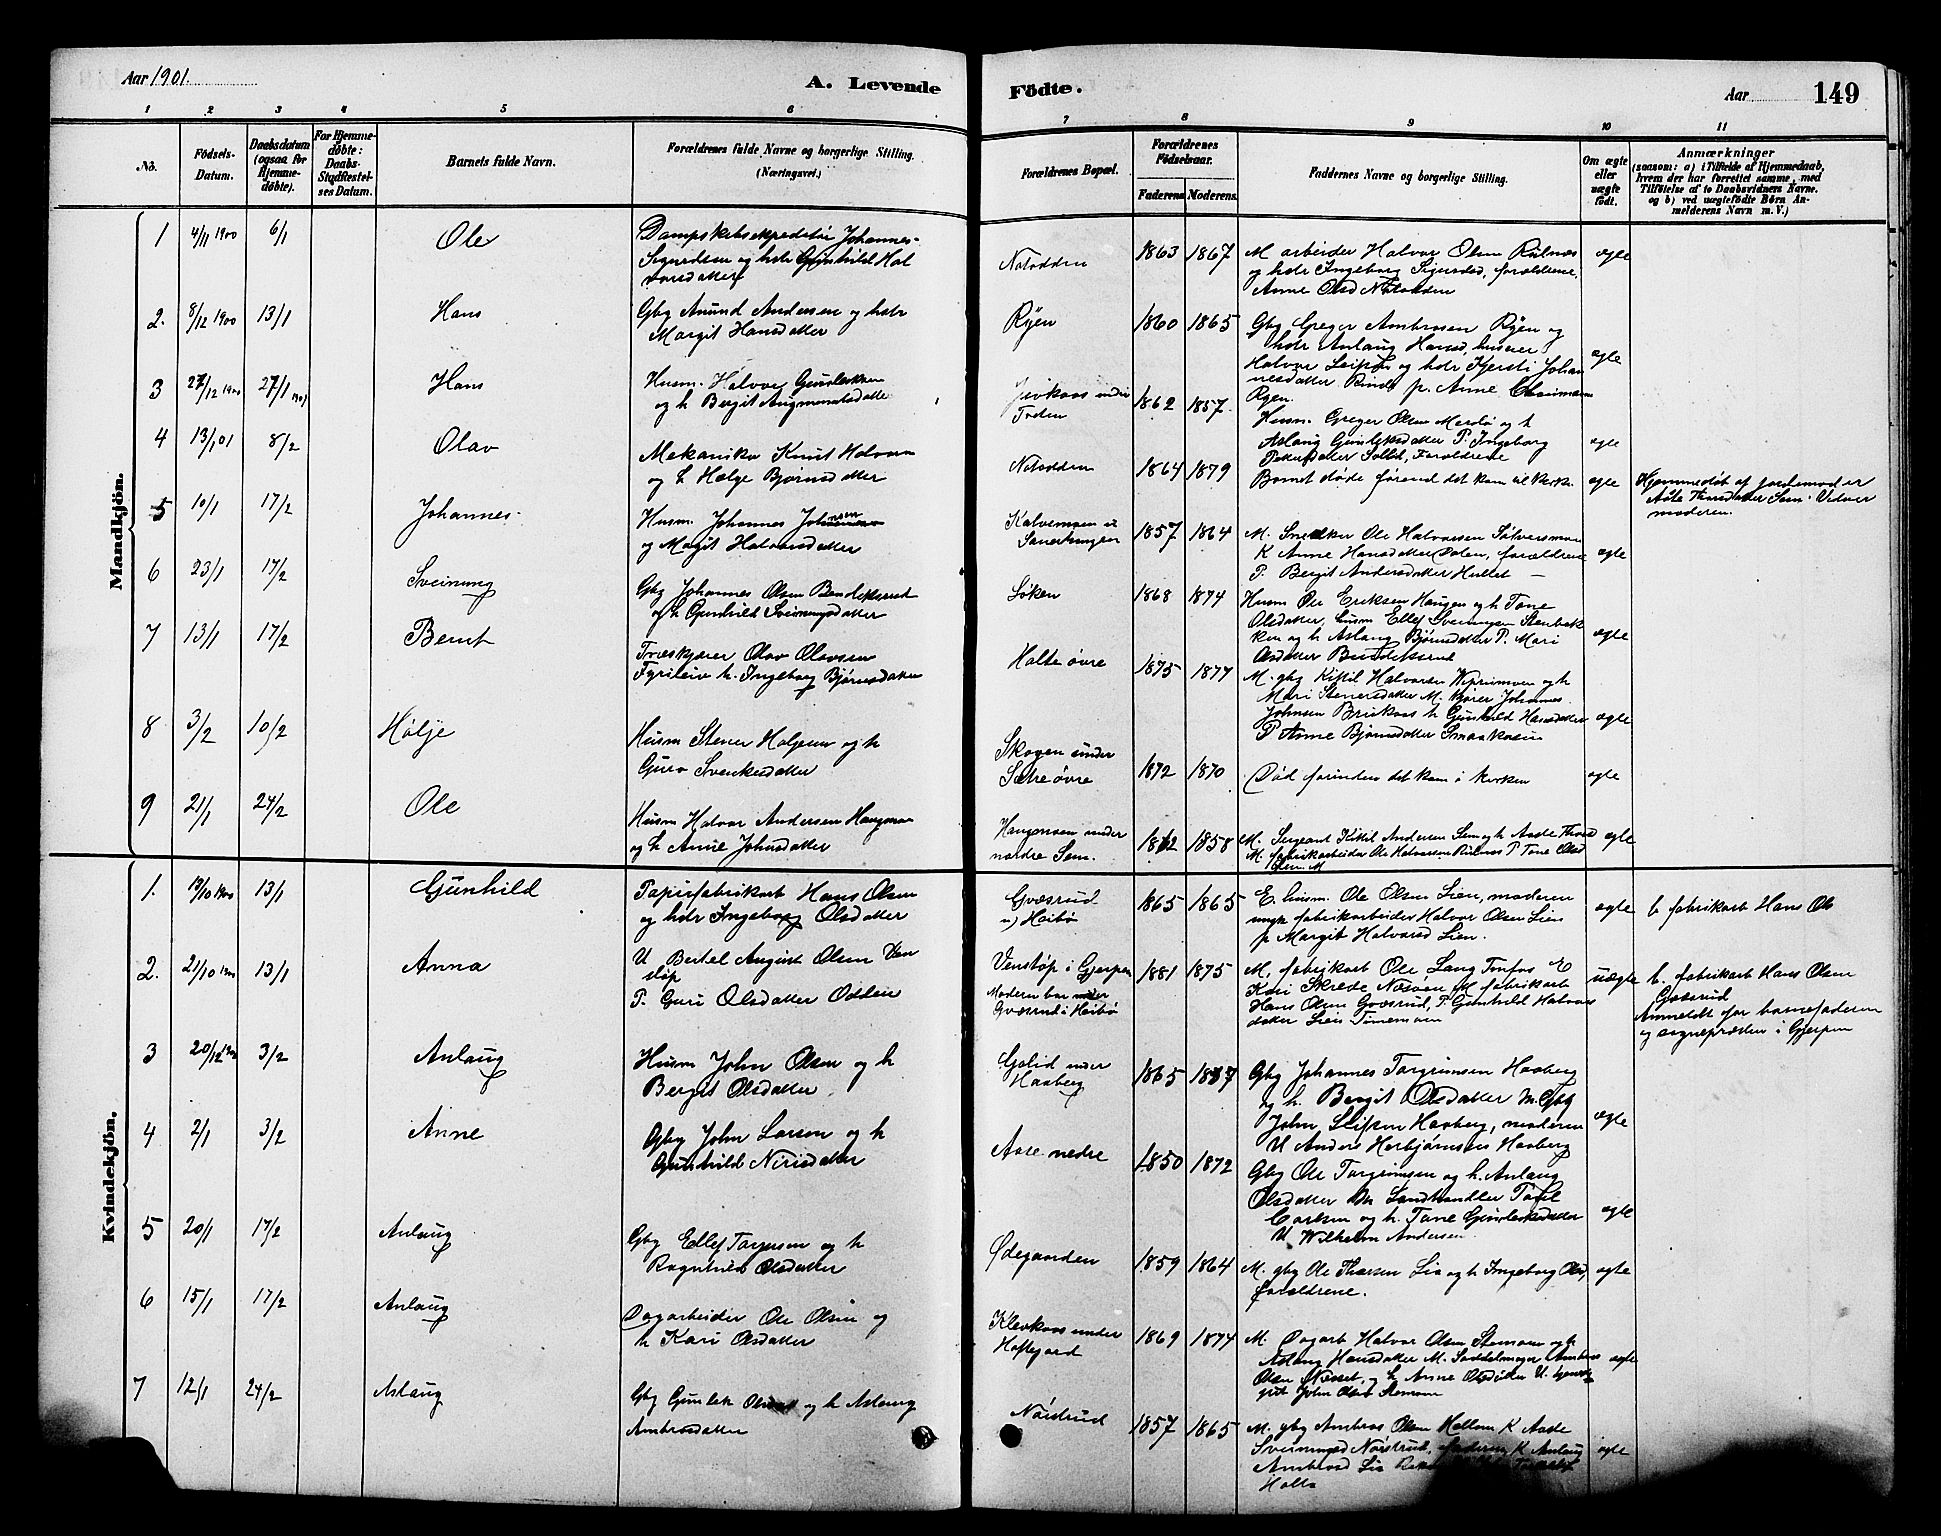 Aar 1901.
A. Levende
Födte.
Aar
149
1 2 3 4 5 6 7 8 9 10 11
No.
Födsels-
Datum.
Daabsdatum
(ogsaa for
Hjemme-
döbte).
For Hjemme-
döbte:
Daabs-
Stadfæstel-
ses Datum.
Barnets fulde Navn.
Forældrenes fulde Navne og borgerlige Stilling.
(Næringsvei.)
Forældrenes Bopæl.
Forældrenes
Födselsaar.
Faderens Moderens.
Faddernes Navne og borgerlige Stilling.
Om ægte
eller
uægte
födt.
Anmærkninger
(saasom: a) i Tilfælde af Hjemmedaab,
hvem der har forrettet samme, med
Tilföielse af to Daabsvidners Navne.
og b) ved uægtefödte Börn An-
melderens Navn m. V.)
Mandkjön.
1 4/11 1900 6/1 Ole
Dampskibsexpeditör Johannes
Sigurdsen og hdr Gunhild Hal
vorsdatter
Notodden 1863 1867
M arbeider Halvor Olsen Rulnæs
og hdr Ingeborg Sigursdod, forældrene,
Anne Olsd Notodden
ægte
2. 8/12 1900 13/1 Hans
Gbg Anund Andersen og hdr
Margit Hansdatter
Ryen 1860 1865
Gbg Greger Ambrosen Ryen og
hdr Anlaug Hansd, huseier
Halvor Leifsen og hdr Kjersti Johan
nesdatter Rinde p. Anne
Ryen.
ægte
3 27/12 1900 27/1 1901 Hans
Husm. Halvor Gunleksen
og h Bergit Augmundsdatter
under
Troen
1862 1857
Husm. Greger Olsen og h
Aslaug Gunleksdatter P. Ingeborg
Forældrene
ægte
4 13/1 01 8/2 Olav
Mekaniker Knut Halvorsen
og h Helge Björnsdatter
Notodden 1864 1879
Barnet döde förend det kom til kirke
ægte
Hjemmedöbt af jordemoder
Aase Thorsdatter Sem. Vidner
moderen.
5 10/1 17/2 Johannes
Husm. Johannes Johannesen
og Margit Halvorsdatter
Kalvemoen u
1857 1864
M. Snedker Ole Halvorsen Sölversmoen
K Anne Hansdatter Dalen, forældrene
P. Bergit Andersdatter Hullet
ægte
6 23/1 17/2 Sveinung
Gbg Johannes Olsen Bendikserud
og h Gunhild Sveinungsdatter
Söken 1868 1874
Husm Ole Eriksen Haugen og h Tone
Olsdatter, husm Ellef Sveinungsen Stenbek
ken og h Aslaug Björnsdatter P. Mari
Olsdatter Bendikserud
ægte
7 13/1 17/2 Bernt
Træskjærer Olav Olavsen
Fyrileiv h. Ingeborg Björnsdatter
Holte övre 1875 1877
M. gbg Kittil Halvorsen og h
Mari Stenersdatter M. kjörer Johannes
Johnsen h Gunhild Hansdatter
P Anne Björnsdatter
ægte
8 3/2 10/2 Hölje
Husm Stener Holjesen og h
Guro Svenkesdatter
Skogen under
Sætre övre
1872 1870
Död forinden det kom i kirken
ægte
9 21/1 24/2 Ole
Husm Halvor Andersen Haugmoen
og h Anne Johnsdatter
Haugmoen under
nordre Sem.
1862 1858
M. Sergeant Kittil Andersen Sem og h Aase Thorsd
M. fabrikarbeider Ole Halvorsen Rulnæs P Tone Olsd
Sem.
ægte
Kvindekjön.
1. 19/10 1900 13/1 Gunhild
Papirfabrikarb Hans Olsen
og hdr Ingeborg Olsdatter
Gvæsrud
u) Heibö
1865 1865
E. husm. Ole Olsen Lien, moderen
ungk fabrikarbeider Halvor Olsen Lien
p Margit Halvorsd Lien.
ægte
b. fabrikarb Hans Ols
2. 21/10 1900 13/1 Anna
U Bertel August Olsen Ven
stöp
P. Guri Olsdatter Odden
Venstöp i Gjerpen
Moderen bor under
Gvæsrud i Heibö
1881 1875
M. fabrikarb Ole Lang Tinfos E
Kari Skrede Næsøen M fabrikarb
Hans Olsen Gvæsrud, P. Gunhild Halvors
datter Lien Tinnemoen
uægte
b. fabrikarb Hans Olsen
Gvæsrud
Anmeldt for barnefaderen
og sogneprästen i Gjerpen
3 20/12 1900 3/2 Anlaug
Husm John Olsen og h
Bergit Olsdatter
Golid under
Haaberg
1865 1857
Gbg Johannes Torgrimsen Haaberg
og h. Bergit Olsdatter M. Gbg
John Leifsen Haaberg, moderen
U Anders Herbjörnsen Haaberg
ægte
4 2/1 3/2 Anne
Gbg John Larsen og h
Gunhild Nirisdatter
Aase nedre 1850 1872
Gbg Ole Torgrimsen og h. Anlaug
Olsdatter M Landhandler Tolif
Carlsen og h. Tone Gunleksdatter
U Wilhelm Andersen.
ægte
5 20/1 17/2 Anlaug
Gbg Ellef Torjusen og h
Ragnhild Olsdatter
Ödegaarden 1859 1864
M. gbg Ole Thorsen Lia og h Ingeborg Olsd,
forældrene.
ægte
6 15/1 17/2 Anlaug
Dagarbeider Ole Olsen og
h Kari Olsdatter
Klevkaas under
Haftegard
1869 1874
M. Dagarb Halvor Olsen Stemoen og h.
Aslaug Hansdatter M. Saddelmager Ambros
Olsen Næset, og h Anne Olsdatter U.
John Olsen Stemoen
ægte
7 12/1 24/2 Aslaug
Gbg Gunlek Olsen og h Aslaug
Ambrosdatter
Nörstrud 1857 1865
M. gbg Ambros Olsen Hollem K Aase
Sveinungsd Nörstrud, faderen, K Anlaug
Ambrosd Lia
Holla
ægte